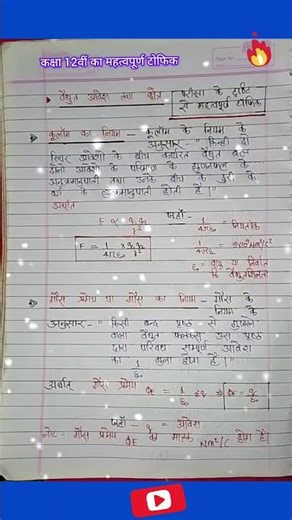 कक्षा 12वीं का महत्वपूर्ण टोपिक
वैद्युत आवेश तथा क्षेत्र
परीक्षा के दृष्टि
से महत्वपूर्ण टोपिक
कूलॉम का नियम - कूलॉम के नियम के
अनुसार - "किन्ही दो
स्थिर आवेशों के बीच कार्यरत वैद्युत बल
दोनों आवेशों के परिमाण के गुणनफल के
अनुक्रमानुपाती तथा उनके बीच की दूरी के
वर्ग के व्युत्क्रमानुपाती होती है।"
अर्थात
F ∝ q₁q₂/r²
जहाँ -
1/4πε₀ = नियतांक
F = 1/4πε₀ × q₁q₂/r²
1/4πε₀ = 9×10⁹ Nm²/C²
ε₀ = वायु या निर्वात
की वैद्युतशीलता
गौस प्रमेय या गौस का नियम - गौस के
नियम के
अनुसार - "किसी बन्द पृष्ठ से गुजरने
वाला वैद्युत फ्लक्स उस पृष्ठ
द्वारा परिबद्ध सम्पूर्ण आवेश
का 1/ε₀ गुना होता है।"
अर्थात् गौस प्रमेय ΦE = 1/ε₀ Σq ⇒ ΦE = q/ε₀
जहाँ - q = आवेश
नोट: गौस प्रमेय ΦE का मात्रक Nm²/C होता है।